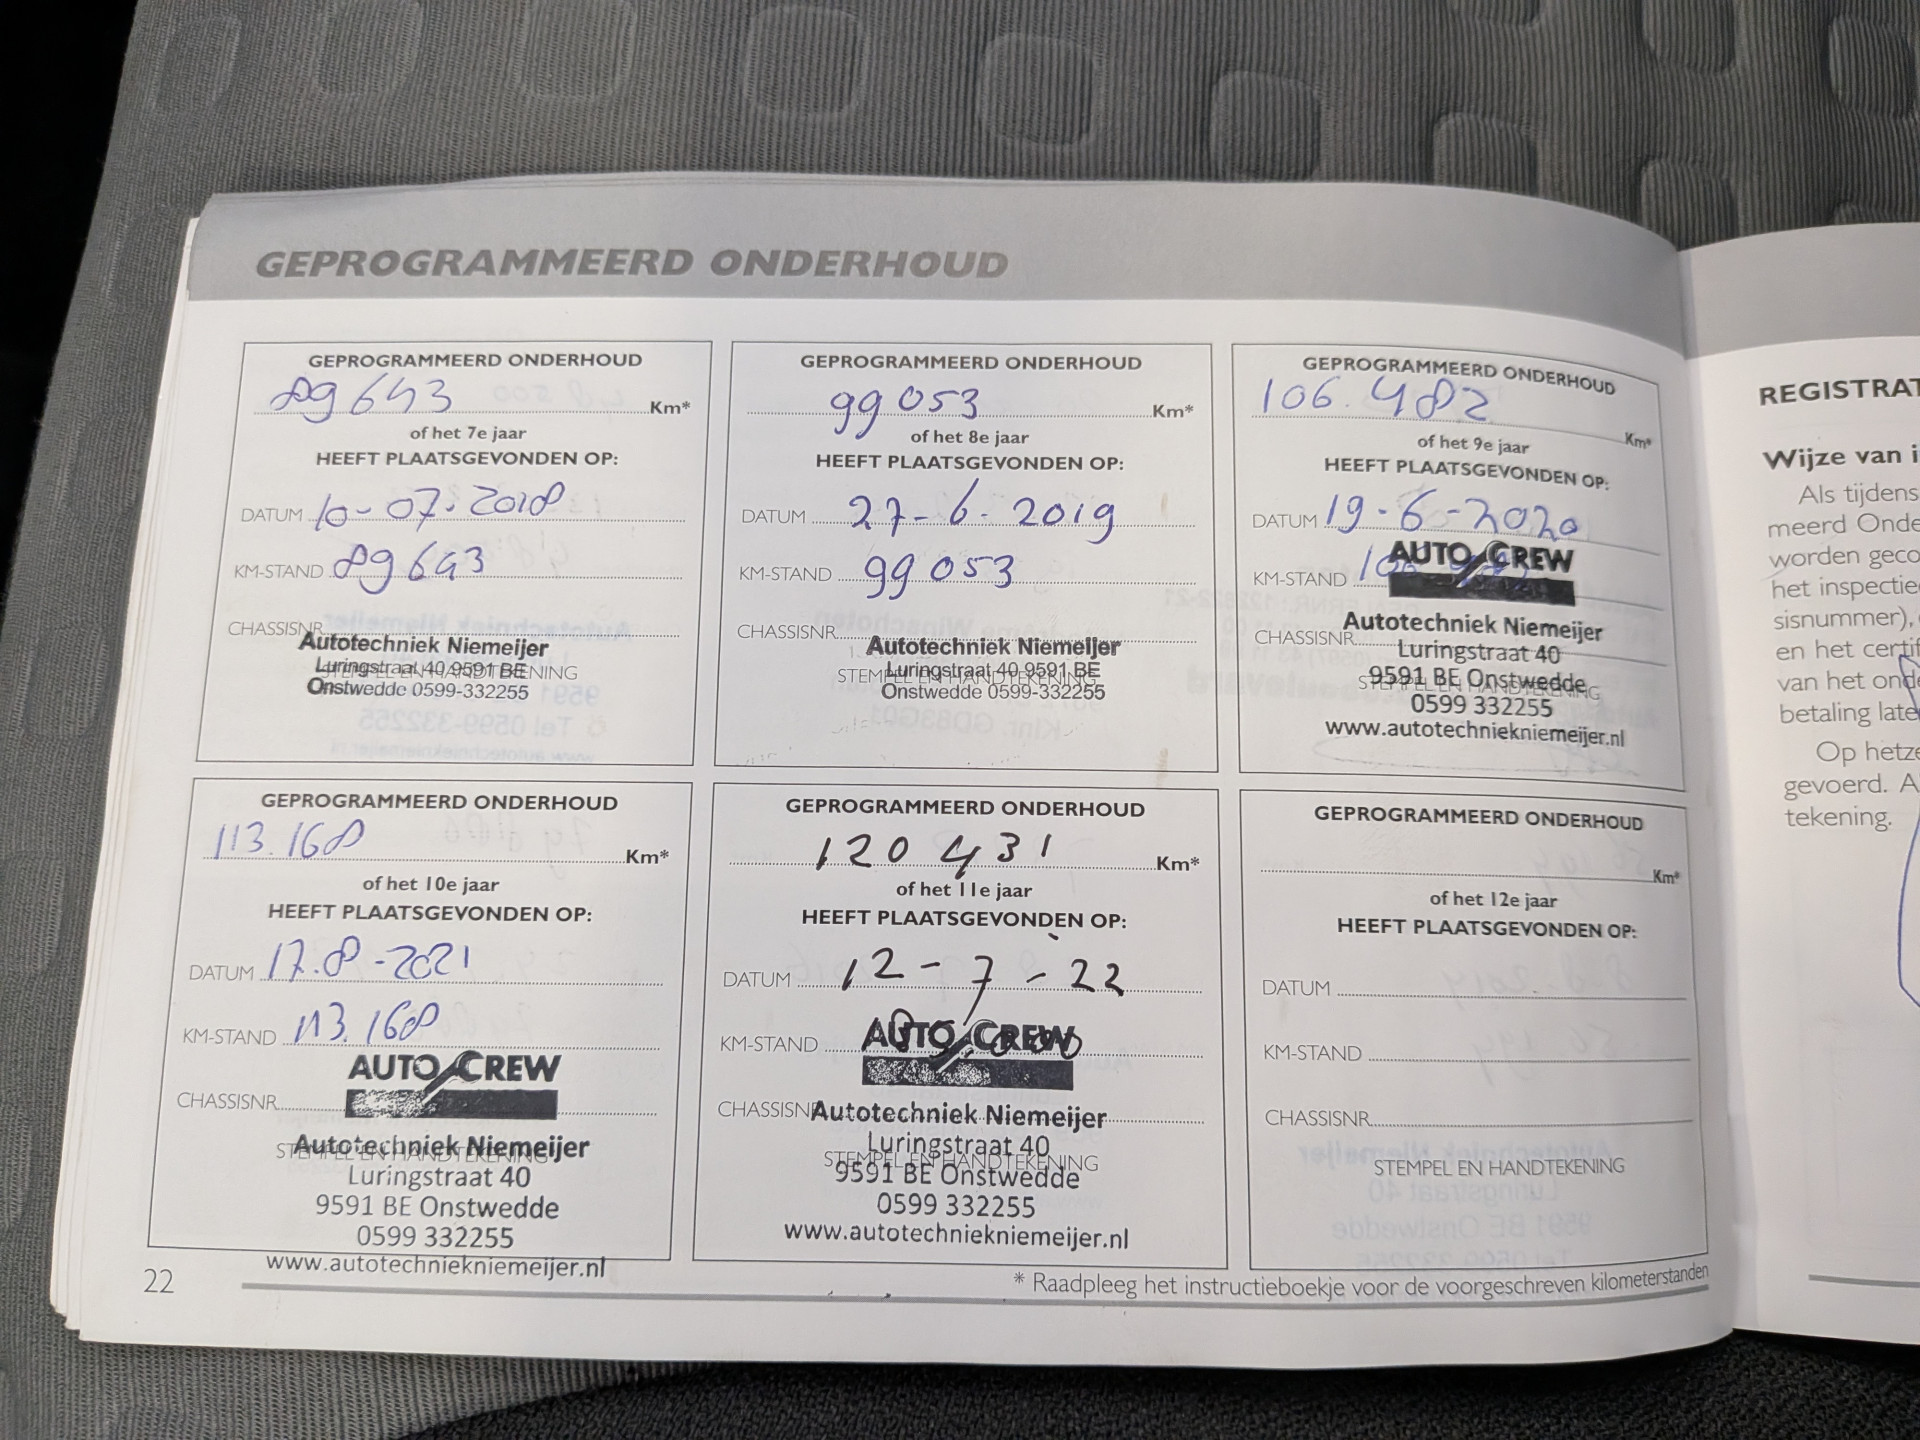 GEPROGRAMMEERD ONDERHOUD
GEPROGRAMMEERD ONDERHOUD
89643 Km*
of het 7e jaar
HEEFT PLAATSGEVONDEN OP:
DATUM 10-07-2018
KM-STAND 89643
CHASSISNR
Autotechniek Niemeijer
Luringstraat 40 9591 BE
STEMPEL EN HANDTEKENING
Onstwedde 0599-332255
GEPROGRAMMEERD ONDERHOUD
99053 Km*
of het 8e jaar
HEEFT PLAATSGEVONDEN OP:
DATUM 27-6-2019
KM-STAND 99053
CHASSISNR
Autotechniek Niemeijer
Luringstraat 40 9591 BE
STEMPEL EN HANDTEKENING
Onstwedde 0599-332255
GEPROGRAMMEERD ONDERHOUD
106.482 Km*
of het 9e jaar
HEEFT PLAATSGEVONDEN OP:
DATUM 19-6-2020
AUTO CREW
KM-STAND
Autotechniek Niemeijer
CHASSISNR
Luringstraat 40
9591 BE Onstwedde
STEMPEL EN HANDTEKENING
0599 332255
www.autotechniekniemeijer.nl
GEPROGRAMMEERD ONDERHOUD
113.168 Km*
of het 10e jaar
HEEFT PLAATSGEVONDEN OP:
DATUM 17.8-2021
KM-STAND 113.168
AUTO CREW
CHASSISNR
Autotechniek Niemeijer
STEMPEL EN HANDTEKENING
Luringstraat 40
9591 BE Onstwedde
0599 332255
www.autotechniekniemeijer.nl
GEPROGRAMMEERD ONDERHOUD
120 431 Km*
of het 11e jaar
HEEFT PLAATSGEVONDEN OP:
DATUM 12-7-22
KM-STAND
AUTO CREW
CHASSISNR
Autotechniek Niemeijer
Luringstraat 40
STEMPEL EN HANDTEKENING
9591 BE Onstwedde
0599 332255
www.autotechniekniemeijer.nl
GEPROGRAMMEERD ONDERHOUD
Km*
of het 12e jaar
HEEFT PLAATSGEVONDEN OP:
DATUM
KM-STAND
CHASSISNR
STEMPEL EN HANDTEKENING
22
* Raadpleeg het instructieboekje voor de voorgeschreven kilometerstanden
REGISTRAT
Wijze van i
Als tijdens
meerd Onde
worden geco
het inspectie
sisnummer),
en het certif
van het onde
betaling late
Op hetze
gevoerd. A
tekening.